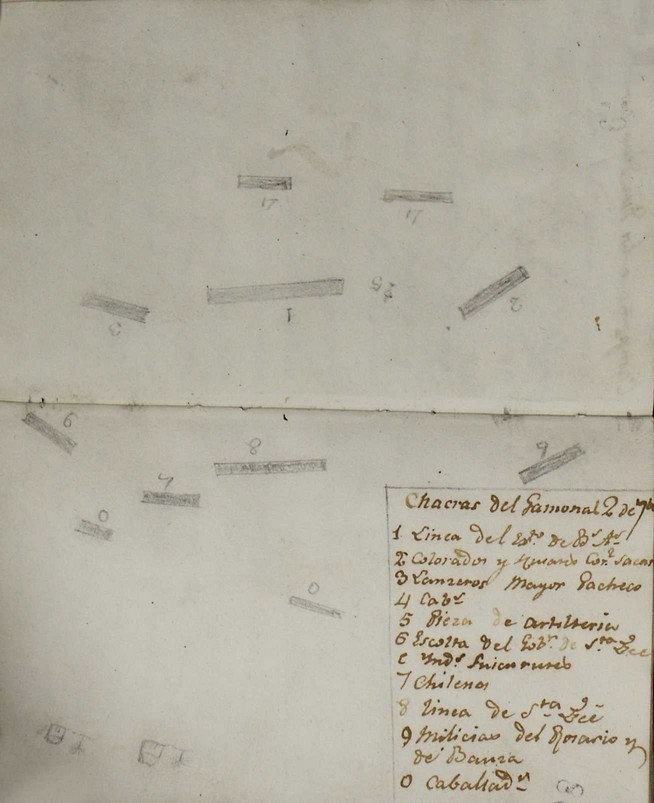 17
17
3
1
25
2
6
8
9
7
0
0
Chacras del Gamonal 2 de 7bre
1 Linea del Exto de Bs As
2 Colorados y Husares Cor.l
3 Lanzeros Mayor Pacheco
4 Cabs
5 Pieza de artilleria
6 Escolta del Gobr de Sta Fee
C Inds
7 Chilenos
8 linea de Sta Fee
9 Milicias del Rosario y
de Banza
0 Caballads